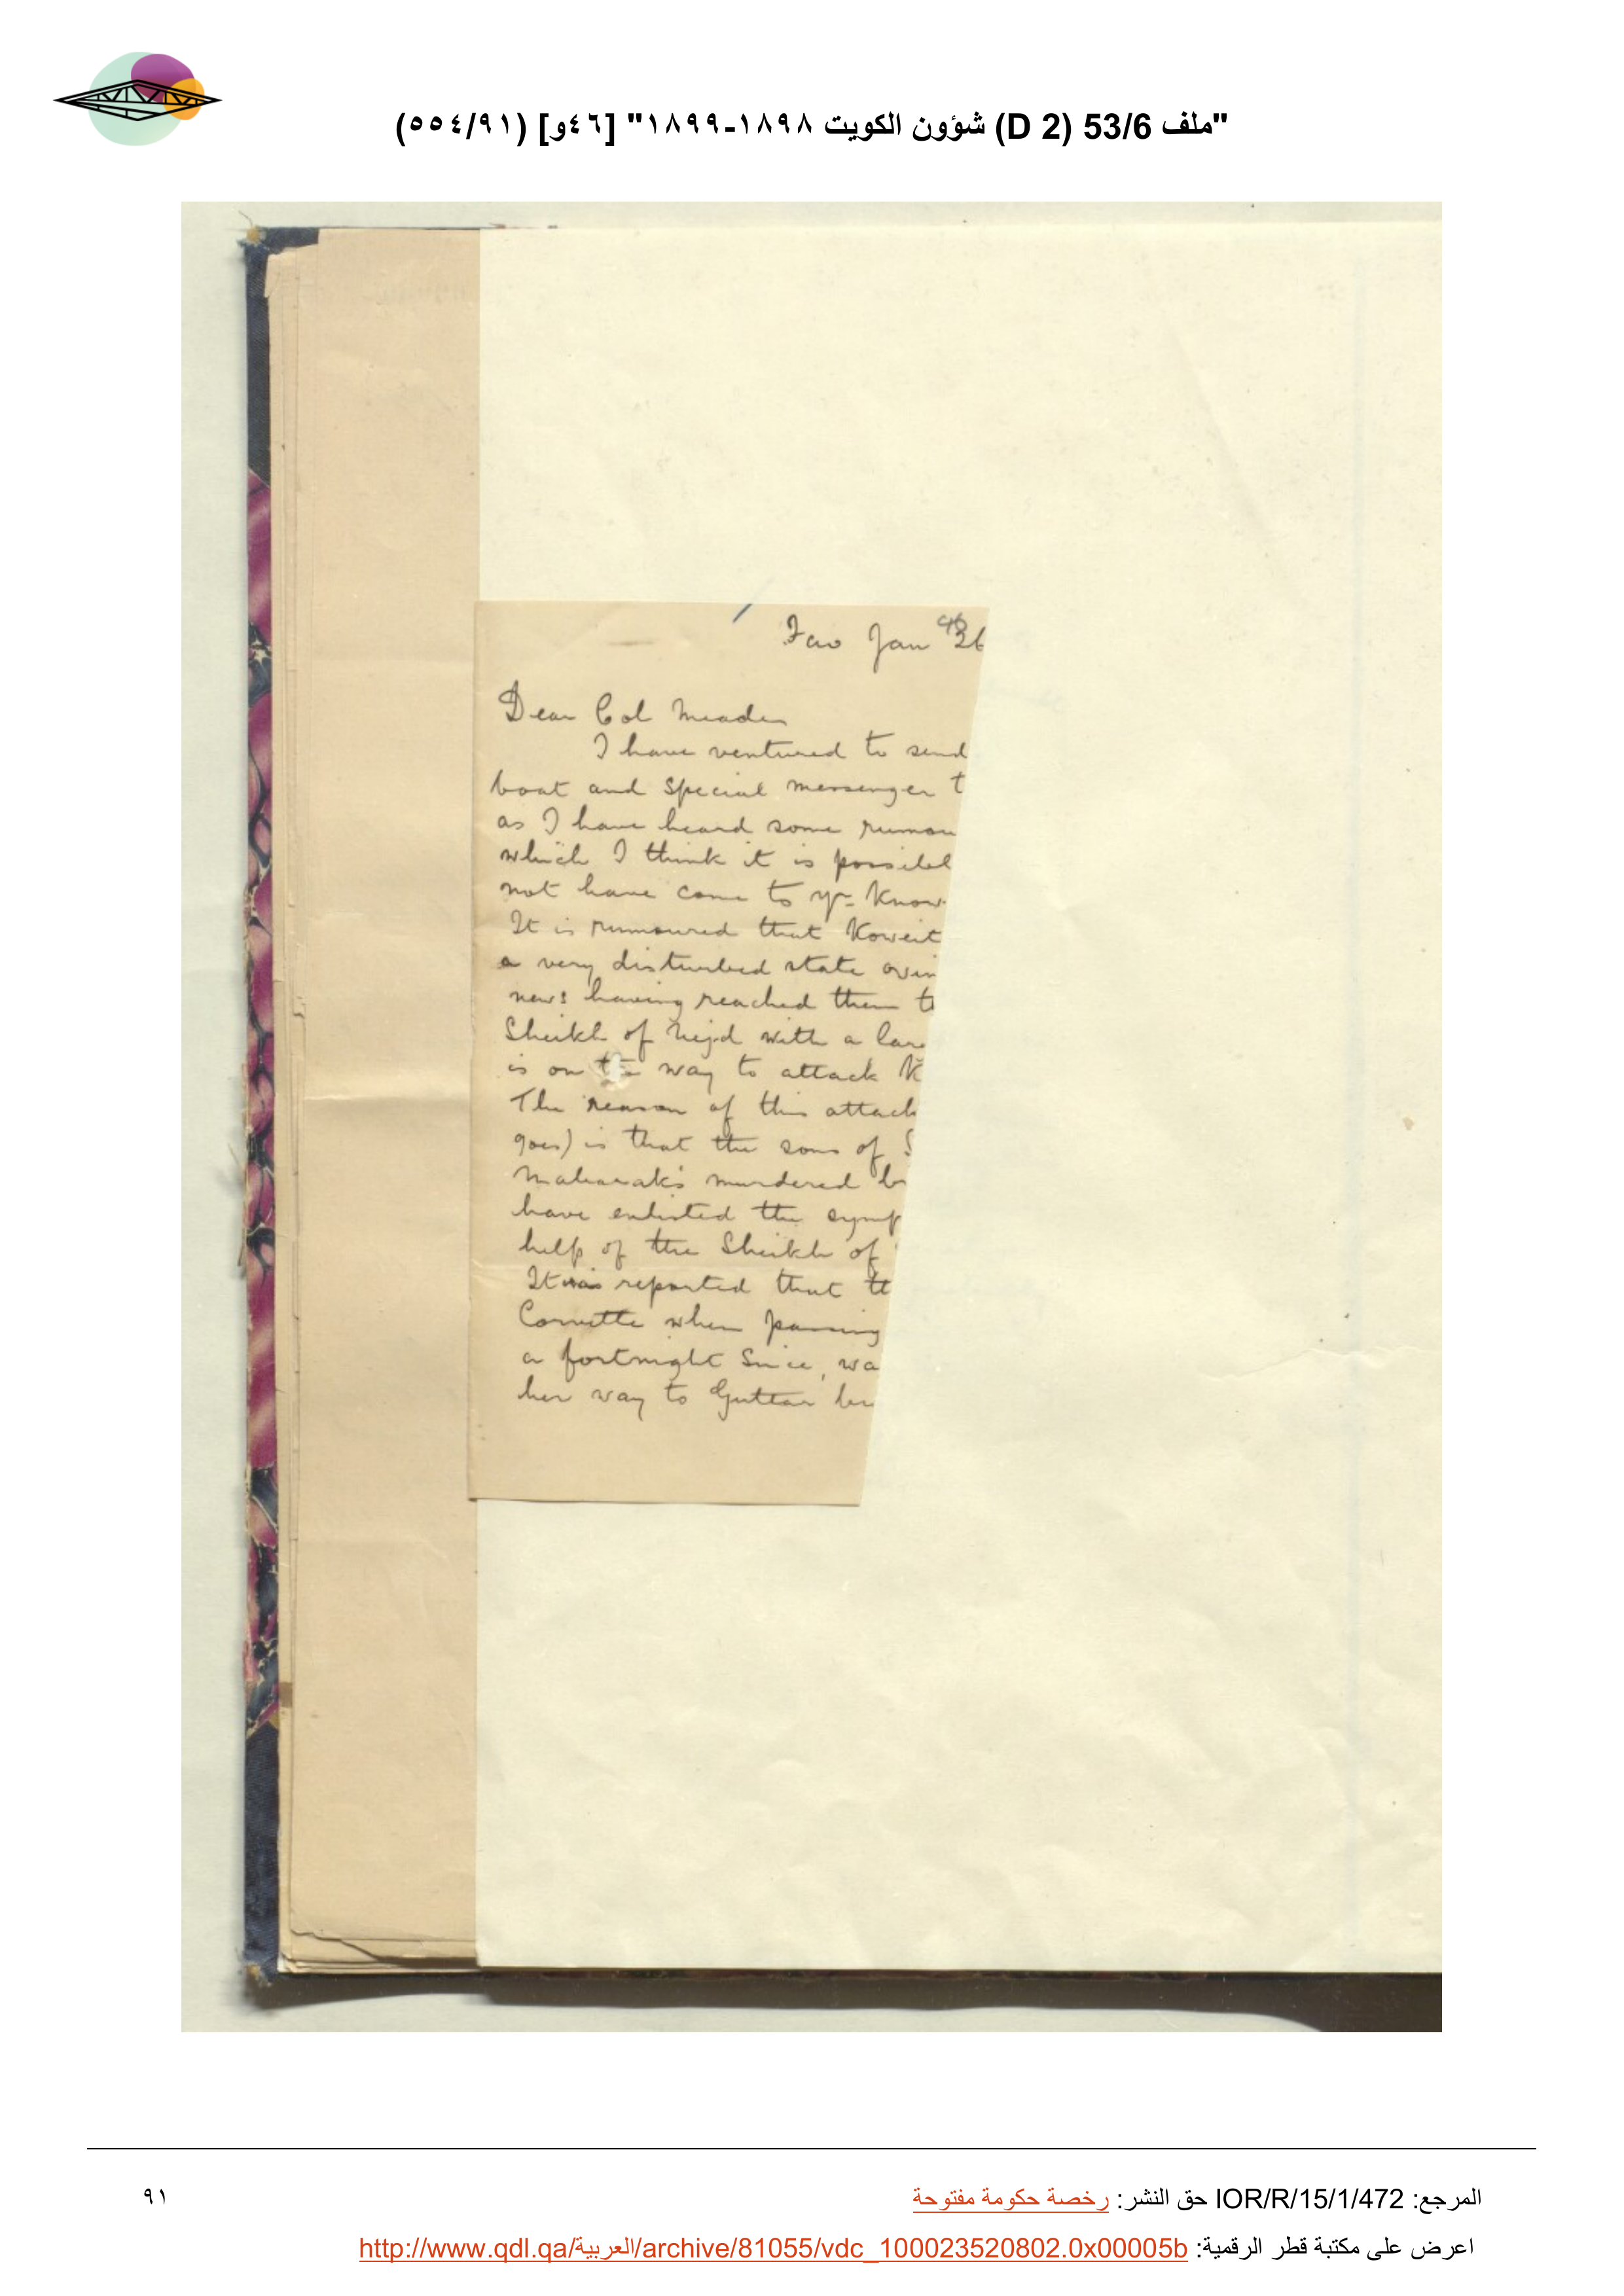 "ملف 53/6 (D 2) شؤون الكويت ١٨٩٨-١٨٩٩" [٤٦و] (٥٥٤/٩١)
Fao Jan 26
Dear Col Meade
I have ventured to send
boat and special messenger t
as I have heard some rumou
which I think it is possibl
not have come to yr know
It is rumoured that Koweit
a very disturbed state owin
news having reached them t
Sheikh of Nejd with a lar
is on the way to attack K
The reason of this attack
goes) is that the sons of S
Mabarak's murdered br
have enlisted the symp
help of the Sheikh of
It was reported that t
Corvette when passing
a fortnight since, wa
her way to Guttar b
المرجع: IOR/R/15/1/472 حق النشر: رخصة حكومة مفتوحة
٩١
اعرض على مكتبة قطر الرقمية: http://www.qdl.qa/العربية/archive/81055/vdc_100023520802.0x00005b